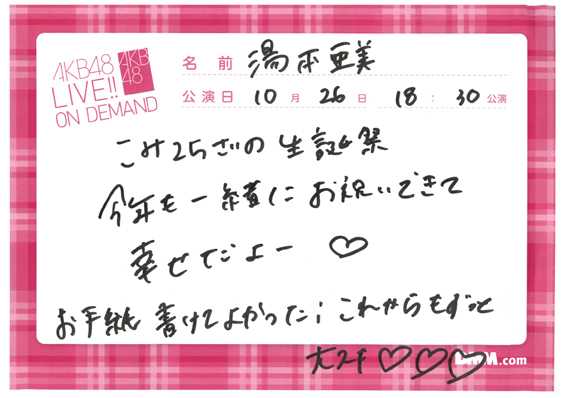 AKB48
LIVE!!
ON DEMAND
AKB
48
名前 湯本亜美
公演日 10月26日 18:30公演
こみ25さいの生誕祭
今年も一緒にお祝いできて
幸せだよー ♡
お手紙書けてよかった; これからもずっと
大スキ♡♡♡
.com